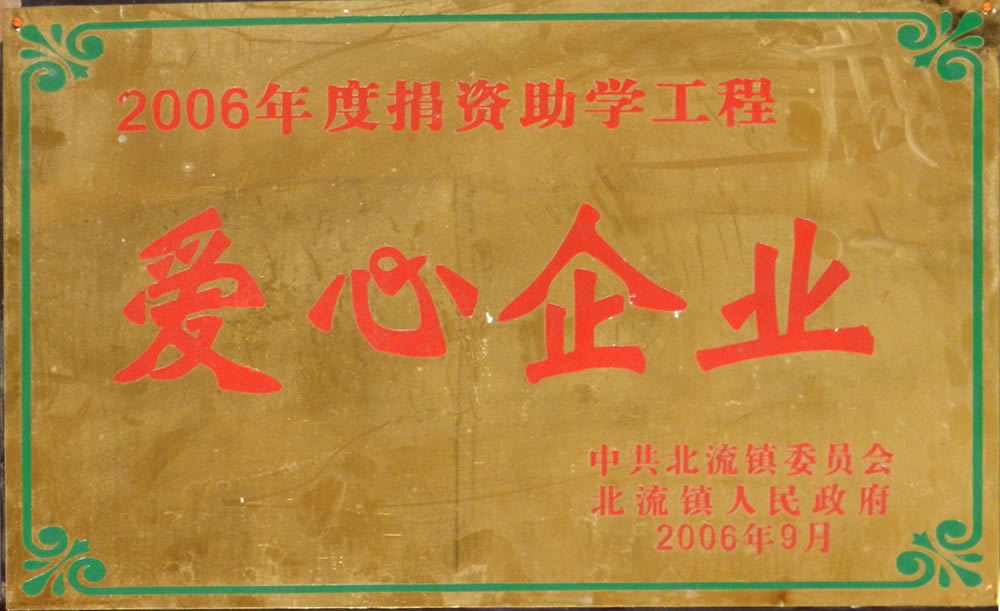 2006年度捐资助学工程
爱心企业
中共北流镇委员会
北流镇人民政府
2006年9月